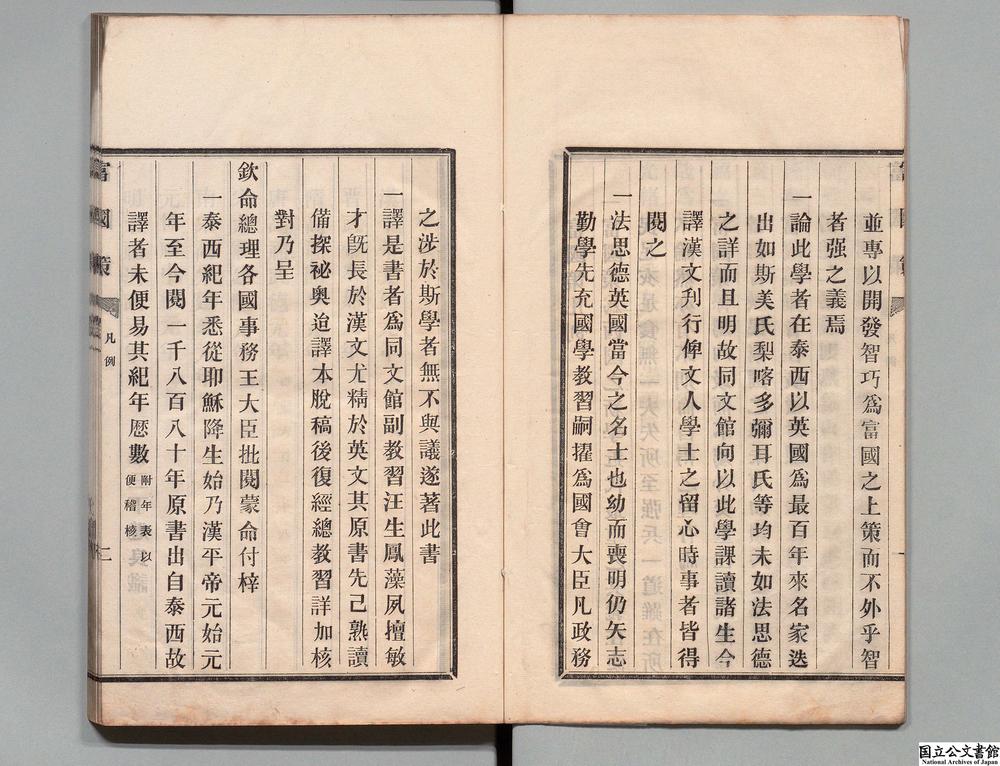 並專以開發智巧爲富國之上策而不外乎智
者强之義焉
一論此學者在泰西以英國爲最百年來名家迭
出如斯美氏梨喀多彌耳氏等均未如法思德
之詳而且明故同文館向以此學課讀諸生今
譯漢文刋行俾文人學士之留心時事者皆得
閱之
一法思德英國當今之名士也幼而喪明仍矢志
勤學先充國學教習嗣擢爲國會大臣凡政務
之涉於斯學者無不與議遂著此書
一譯是書者爲同文館副教習汪生鳳藻夙擅敏
才旣長於漢文尤精於英文其原書先已熟讀
備探祕奧迨譯本脫稿後復經總教習詳加核
對乃呈
欽命總理各國事務王大臣批閱蒙命付梓
一泰西紀年悉從耶穌降生始乃漢平帝元始元
年至今閱一千八百八十年原書出自泰西故
譯者未便易其紀年歷數附年表以
便稽核
富國策
凡例
二
国立公文書館
National Archives of Japan